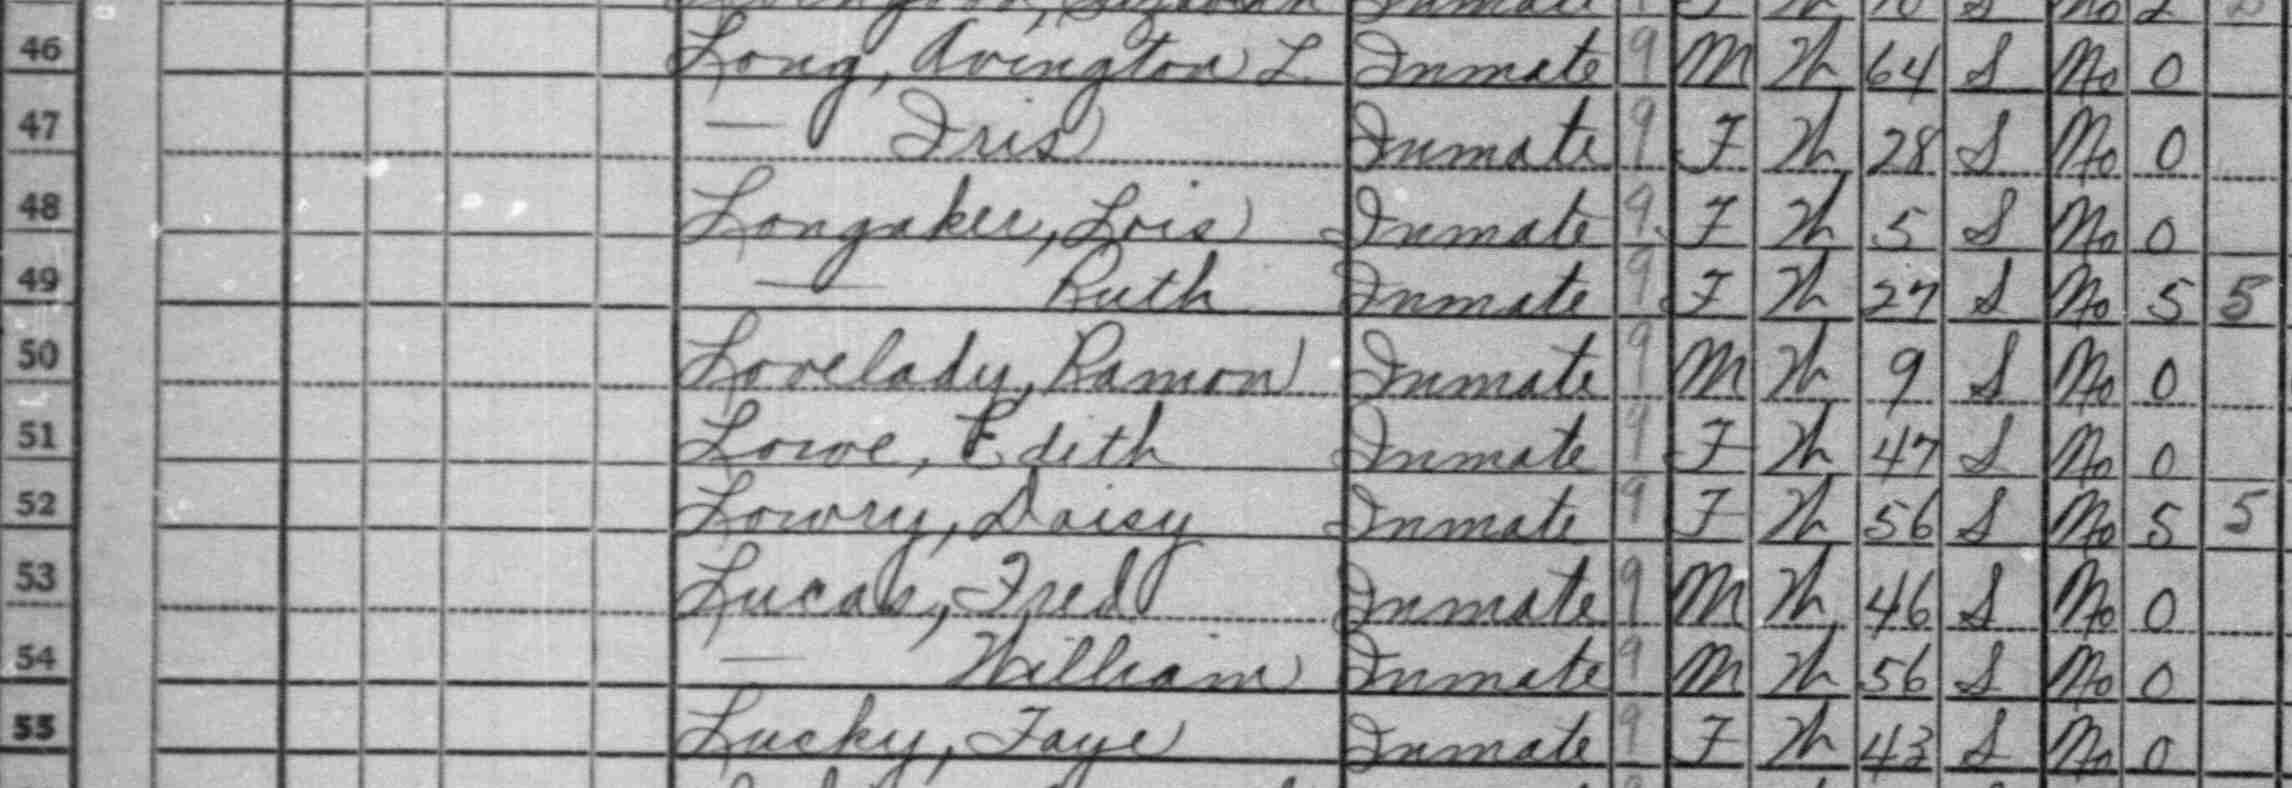 46 Long, Avington L Inmate 9 M W 64 S No 0
47 — Iris Inmate 9 F W 28 S No 0
48 Longaker, Lois Inmate 9 F W 5 S No 0
49 — Ruth Inmate 9 F W 27 S No 5 5
50 Lovelady, Ramon Inmate 9 M W 9 S No 0
51 Lowe, Edith Inmate 9 F W 47 S No 0
52 Lowry, Daisy Inmate 9 F W 56 S No 5 5
53 Lucas, Fred Inmate 9 M W 46 S No 0
54 — William Inmate 9 M W 56 S No 0
55 Lucky, Faye Inmate 9 F W 43 S No 0